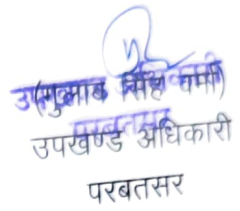 (गुलाब सिंह वर्मा)
उपखण्ड अधिकारी
परबतसर